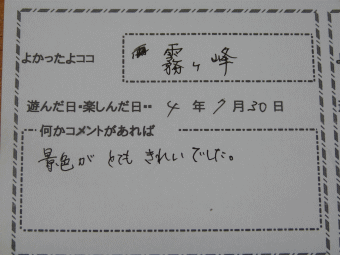 よかったよココ 霧ヶ峰
遊んだ日・楽しんだ日・・ 4 年 9 月 30 日
何かコメントがあれば
景色が とても きれいでした。